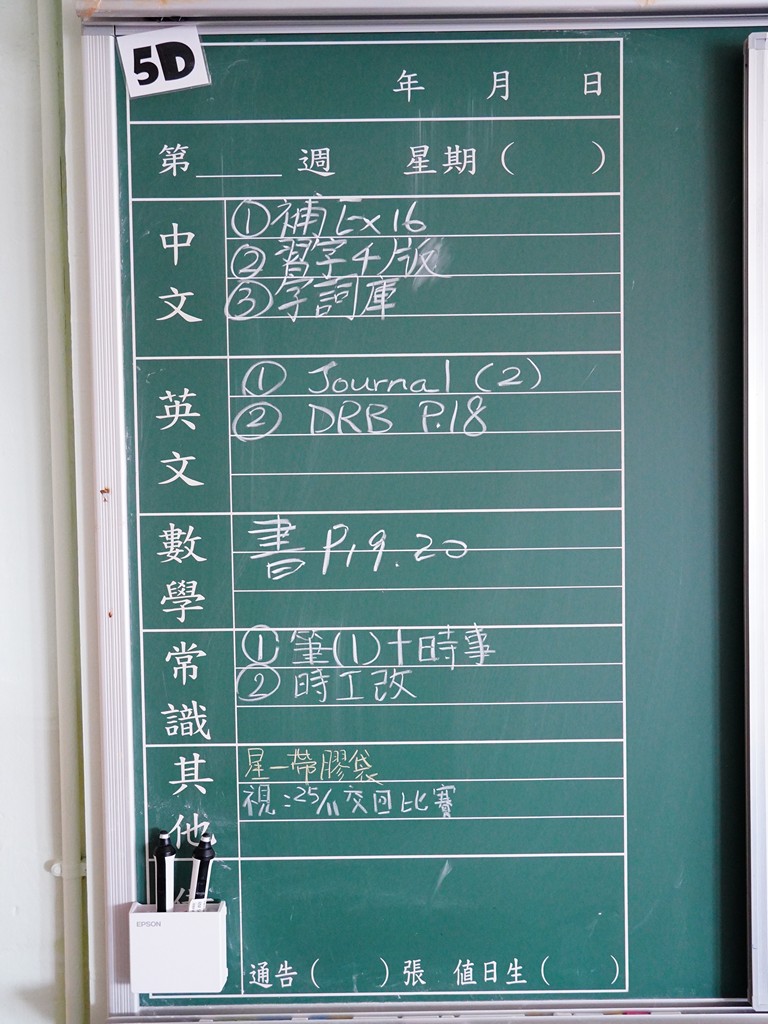 5D
年 月 日
第____週 星期( )
中文
①補Ex16
②習字4版
③字詞庫
英文
① Journal (2)
② DRB P.18
數學
書 P.19.20
常識
①筆(1)+時事
②時工改
其他
星一帶膠袋
視:25/11交回比賽
EPSON
通告( )張 值日生( )